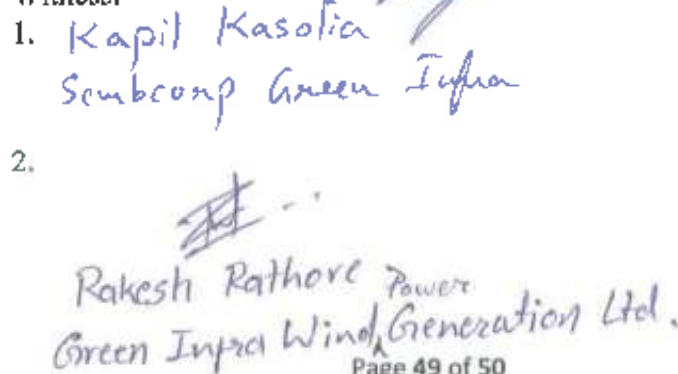 Witness:
1. Kapil Kasolia
Sembcorp Green Infra
2.
Rakesh Rathore
Green Infra Wind Power Generation Ltd.
Page 49 of 50